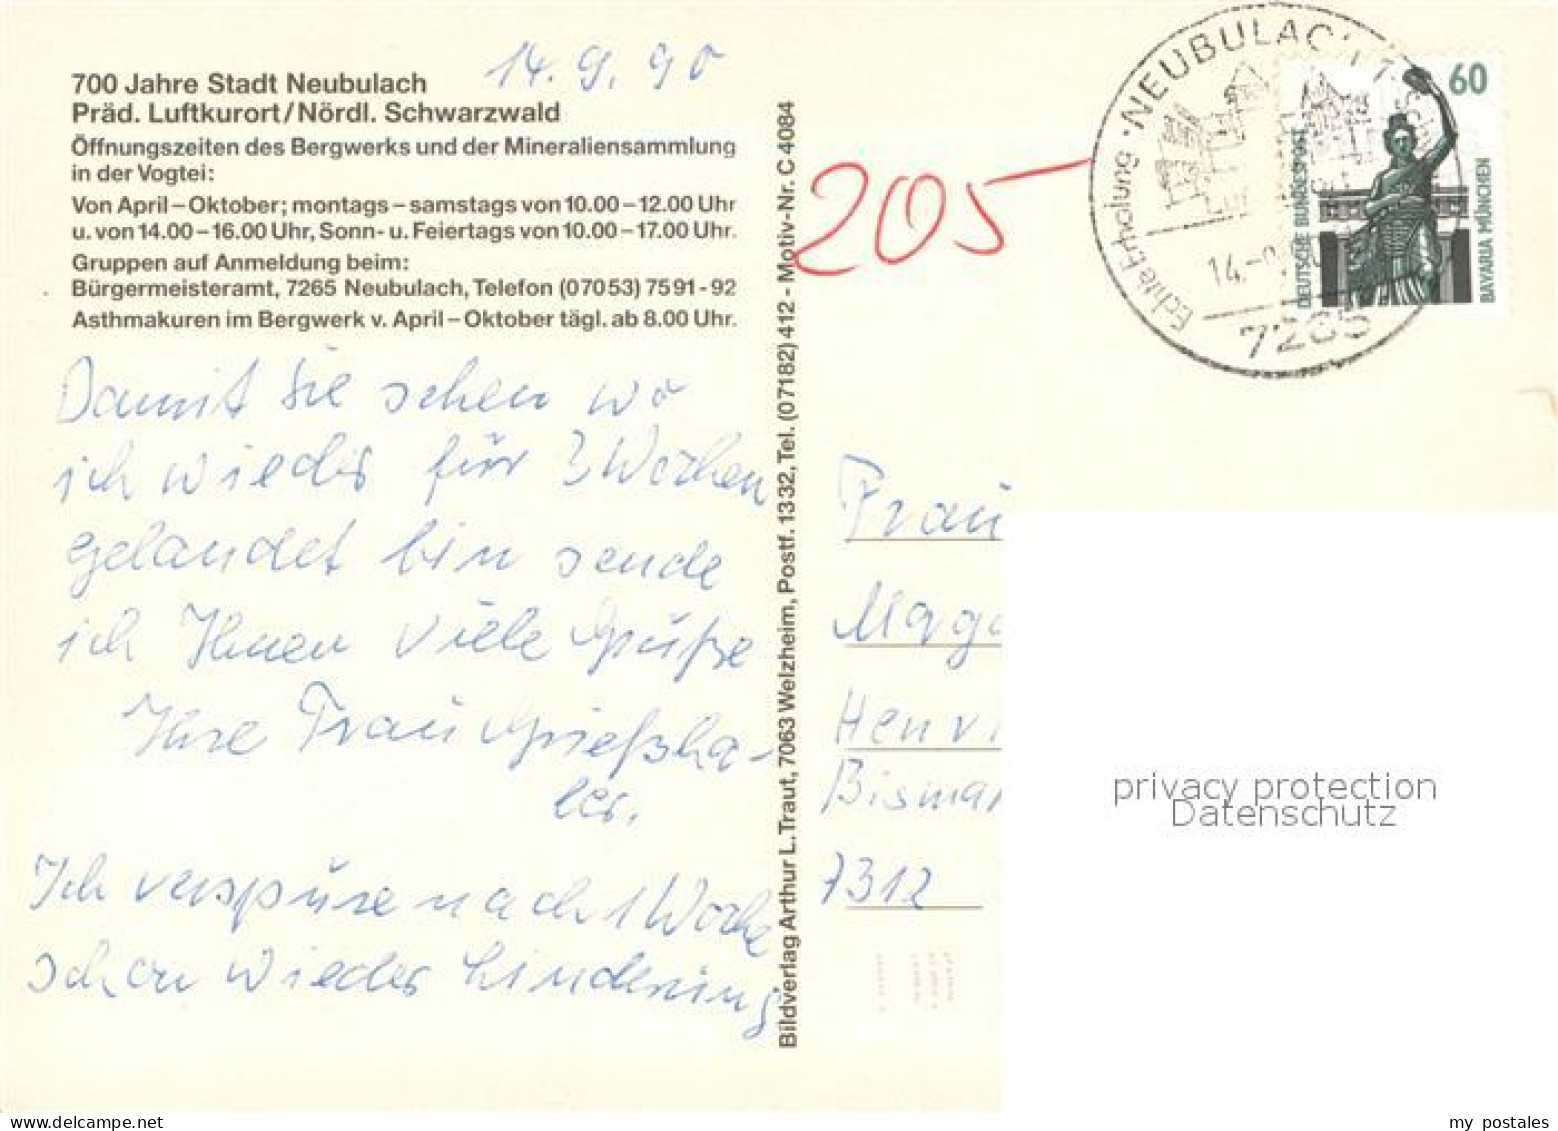 14.9.90
700 Jahre Stadt Neubulach
Präd. Luftkurort/Nördl. Schwarzwald
Öffnungszeiten des Bergwerks und der Mineraliensammlung
in der Vogtei:
Von April – Oktober; montags – samstags von 10.00 – 12.00 Uhr
u. von 14.00 – 16.00 Uhr, Sonn- u. Feiertags von 10.00 – 17.00 Uhr.
Gruppen auf Anmeldung beim:
Bürgermeisteramt, 7265 Neubulach, Telefon (07053) 7591 - 92
Asthmakuren im Bergwerk v. April – Oktober tägl. ab 8.00 Uhr.
Damit Sie sehen wo
ich wieder für 3 Wochen
gelandet bin sende
ich Ihnen viele Grüße
Ihre Frau Grießha-
ber.
Ich verspüre nach 1 Woche
schon wieder Linderung
Bildverlag Arthur L. Traut, 7063 Welzheim, Postf. 1332, Tel. (07182) 412 - Motiv-Nr. C 4084
205
NEUBULACH
Echte Erholung
14.-9.
7265
60
DEUTSCHE BUNDESPOST
BAVARIA MÜNCHEN
Frau
Magd
Henri
Bismar
7312
privacy protection
Datenschutz
my postales